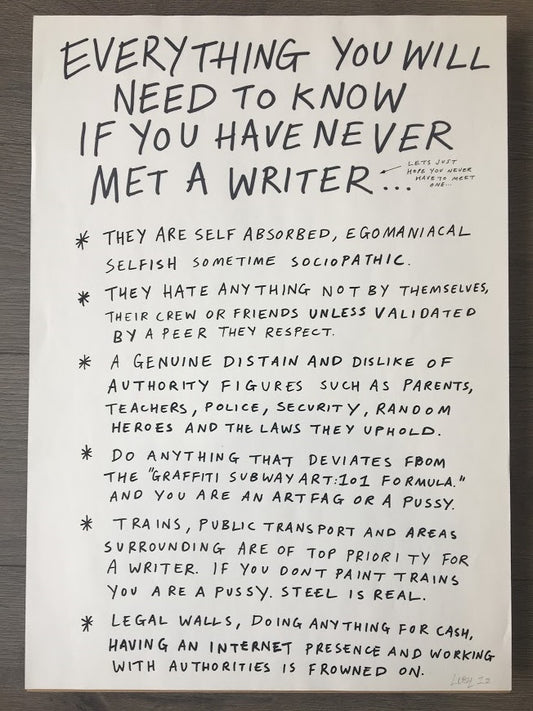 EVERYTHING YOU WILL
NEED TO KNOW
IF YOU HAVE NEVER
MET A WRITER...
LETS JUST
HOPE YOU NEVER
HAVE TO MEET
ONE...
* THEY ARE SELF ABSORBED, EGOMANIACAL
SELFISH SOMETIME SOCIOPATHIC.
* THEY HATE ANYTHING NOT BY THEMSELVES,
THEIR CREW OR FRIENDS UNLESS VALIDATED
BY A PEER THEY RESPECT.
* A GENUINE DISTAIN AND DISLIKE OF
AUTHORITY FIGURES SUCH AS PARENTS,
TEACHERS, POLICE, SECURITY, RANDOM
HEROES AND THE LAWS THEY UPHOLD.
* DO ANYTHING THAT DEVIATES FROM
THE "GRAFFITI SUBWAY ART:101 FORMULA."
AND YOU ARE AN ARTFAG OR A PUSSY.
* TRAINS, PUBLIC TRANSPORT AND AREAS
SURROUNDING ARE OF TOP PRIORITY FOR
A WRITER. IF YOU DONT PAINT TRAINS
YOU ARE A PUSSY. STEEL IS REAL.
* LEGAL WALLS, DOING ANYTHING FOR CASH,
HAVING AN INTERNET PRESENCE AND WORKING
WITH AUTHORITIES IS FROWNED ON.